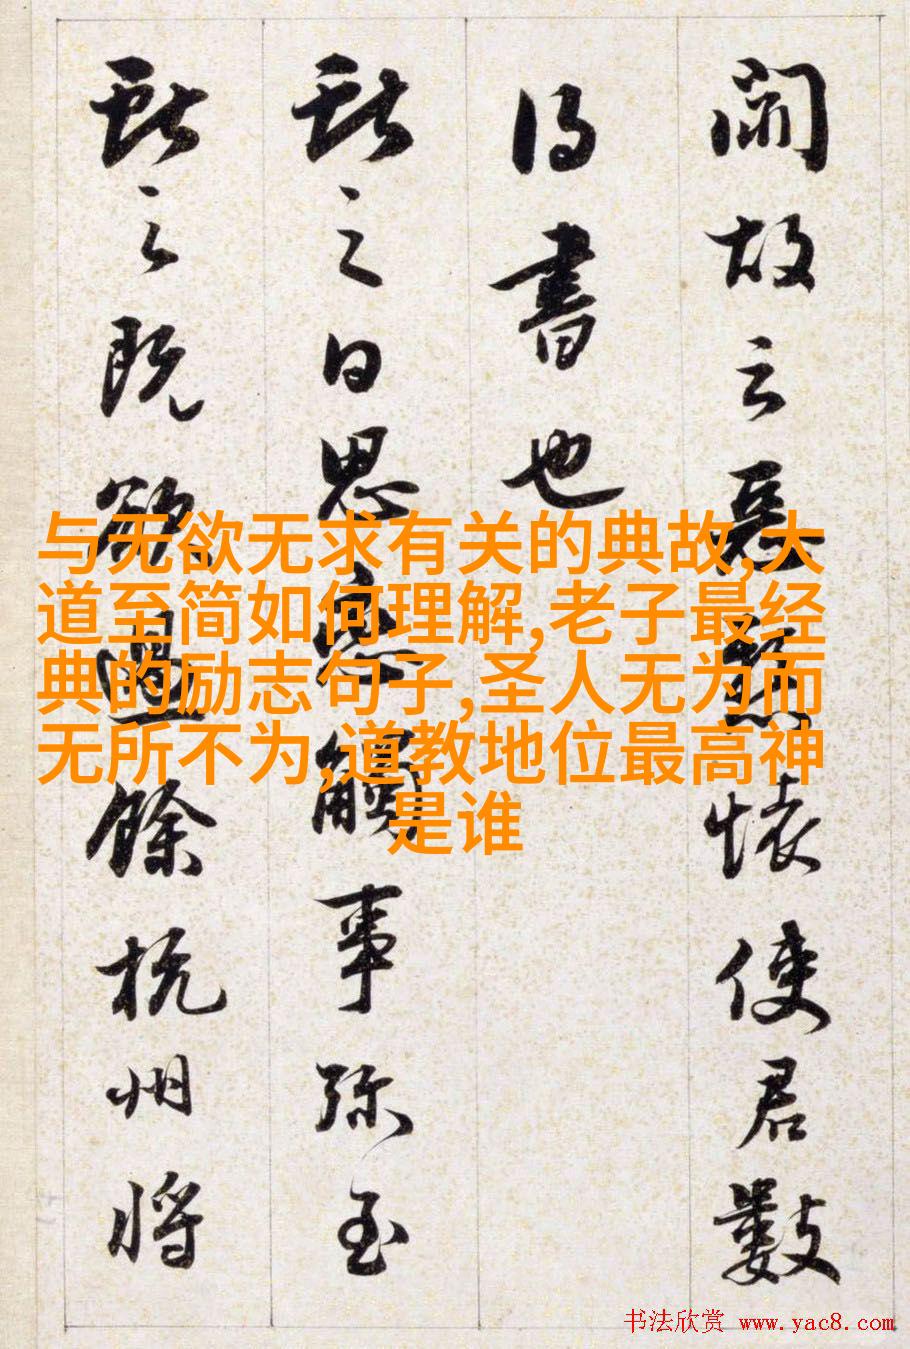 故云惡懸懷使君數
得書也
獻之白思戀觸事彌至
獻之既欲過餘杭州將
与无欲无求有关的典故,大
道至简如何理解,老子最经
典的励志句子,圣人无为而
无所不为,道教地位最高神
是谁
书法欣赏 www.yac8.com